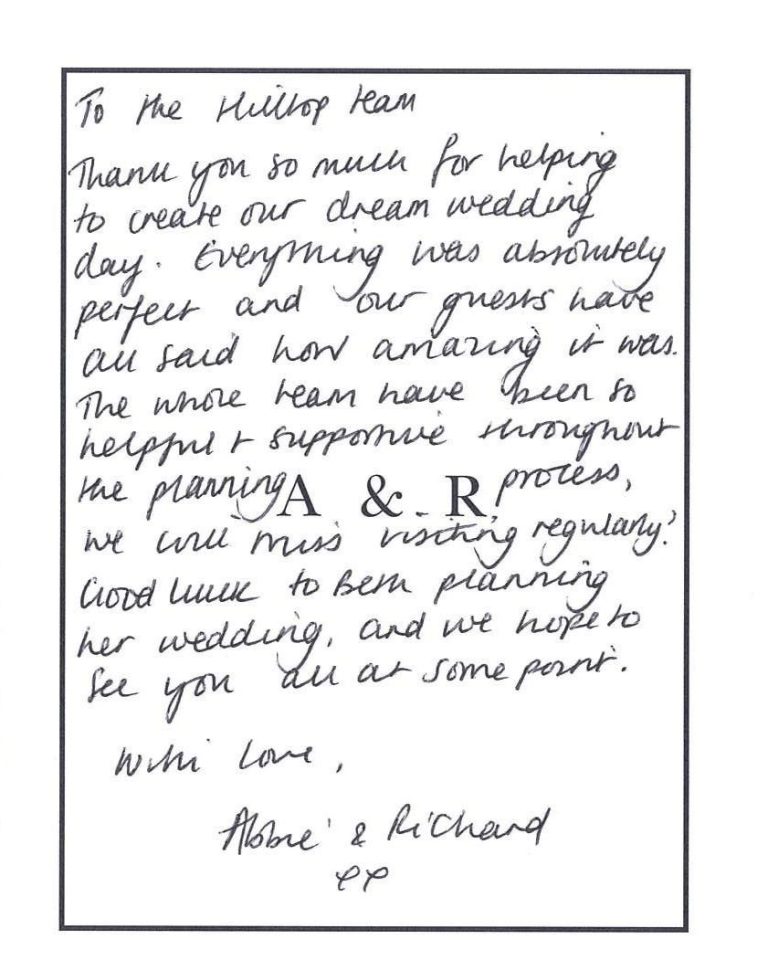 To the Hilltop team
Thank you so much for helping
to create our dream wedding
day. Everything was absolutely
perfect and our guests have
all said how amazing it was.
The whole team have been so
helpful + supportive throughout
the planning A & R process,
we will miss visiting regularly!
Good luck to Beth planning
her wedding, and we hope to
see you all at some point.
With love,
Abbie & Richard
xx